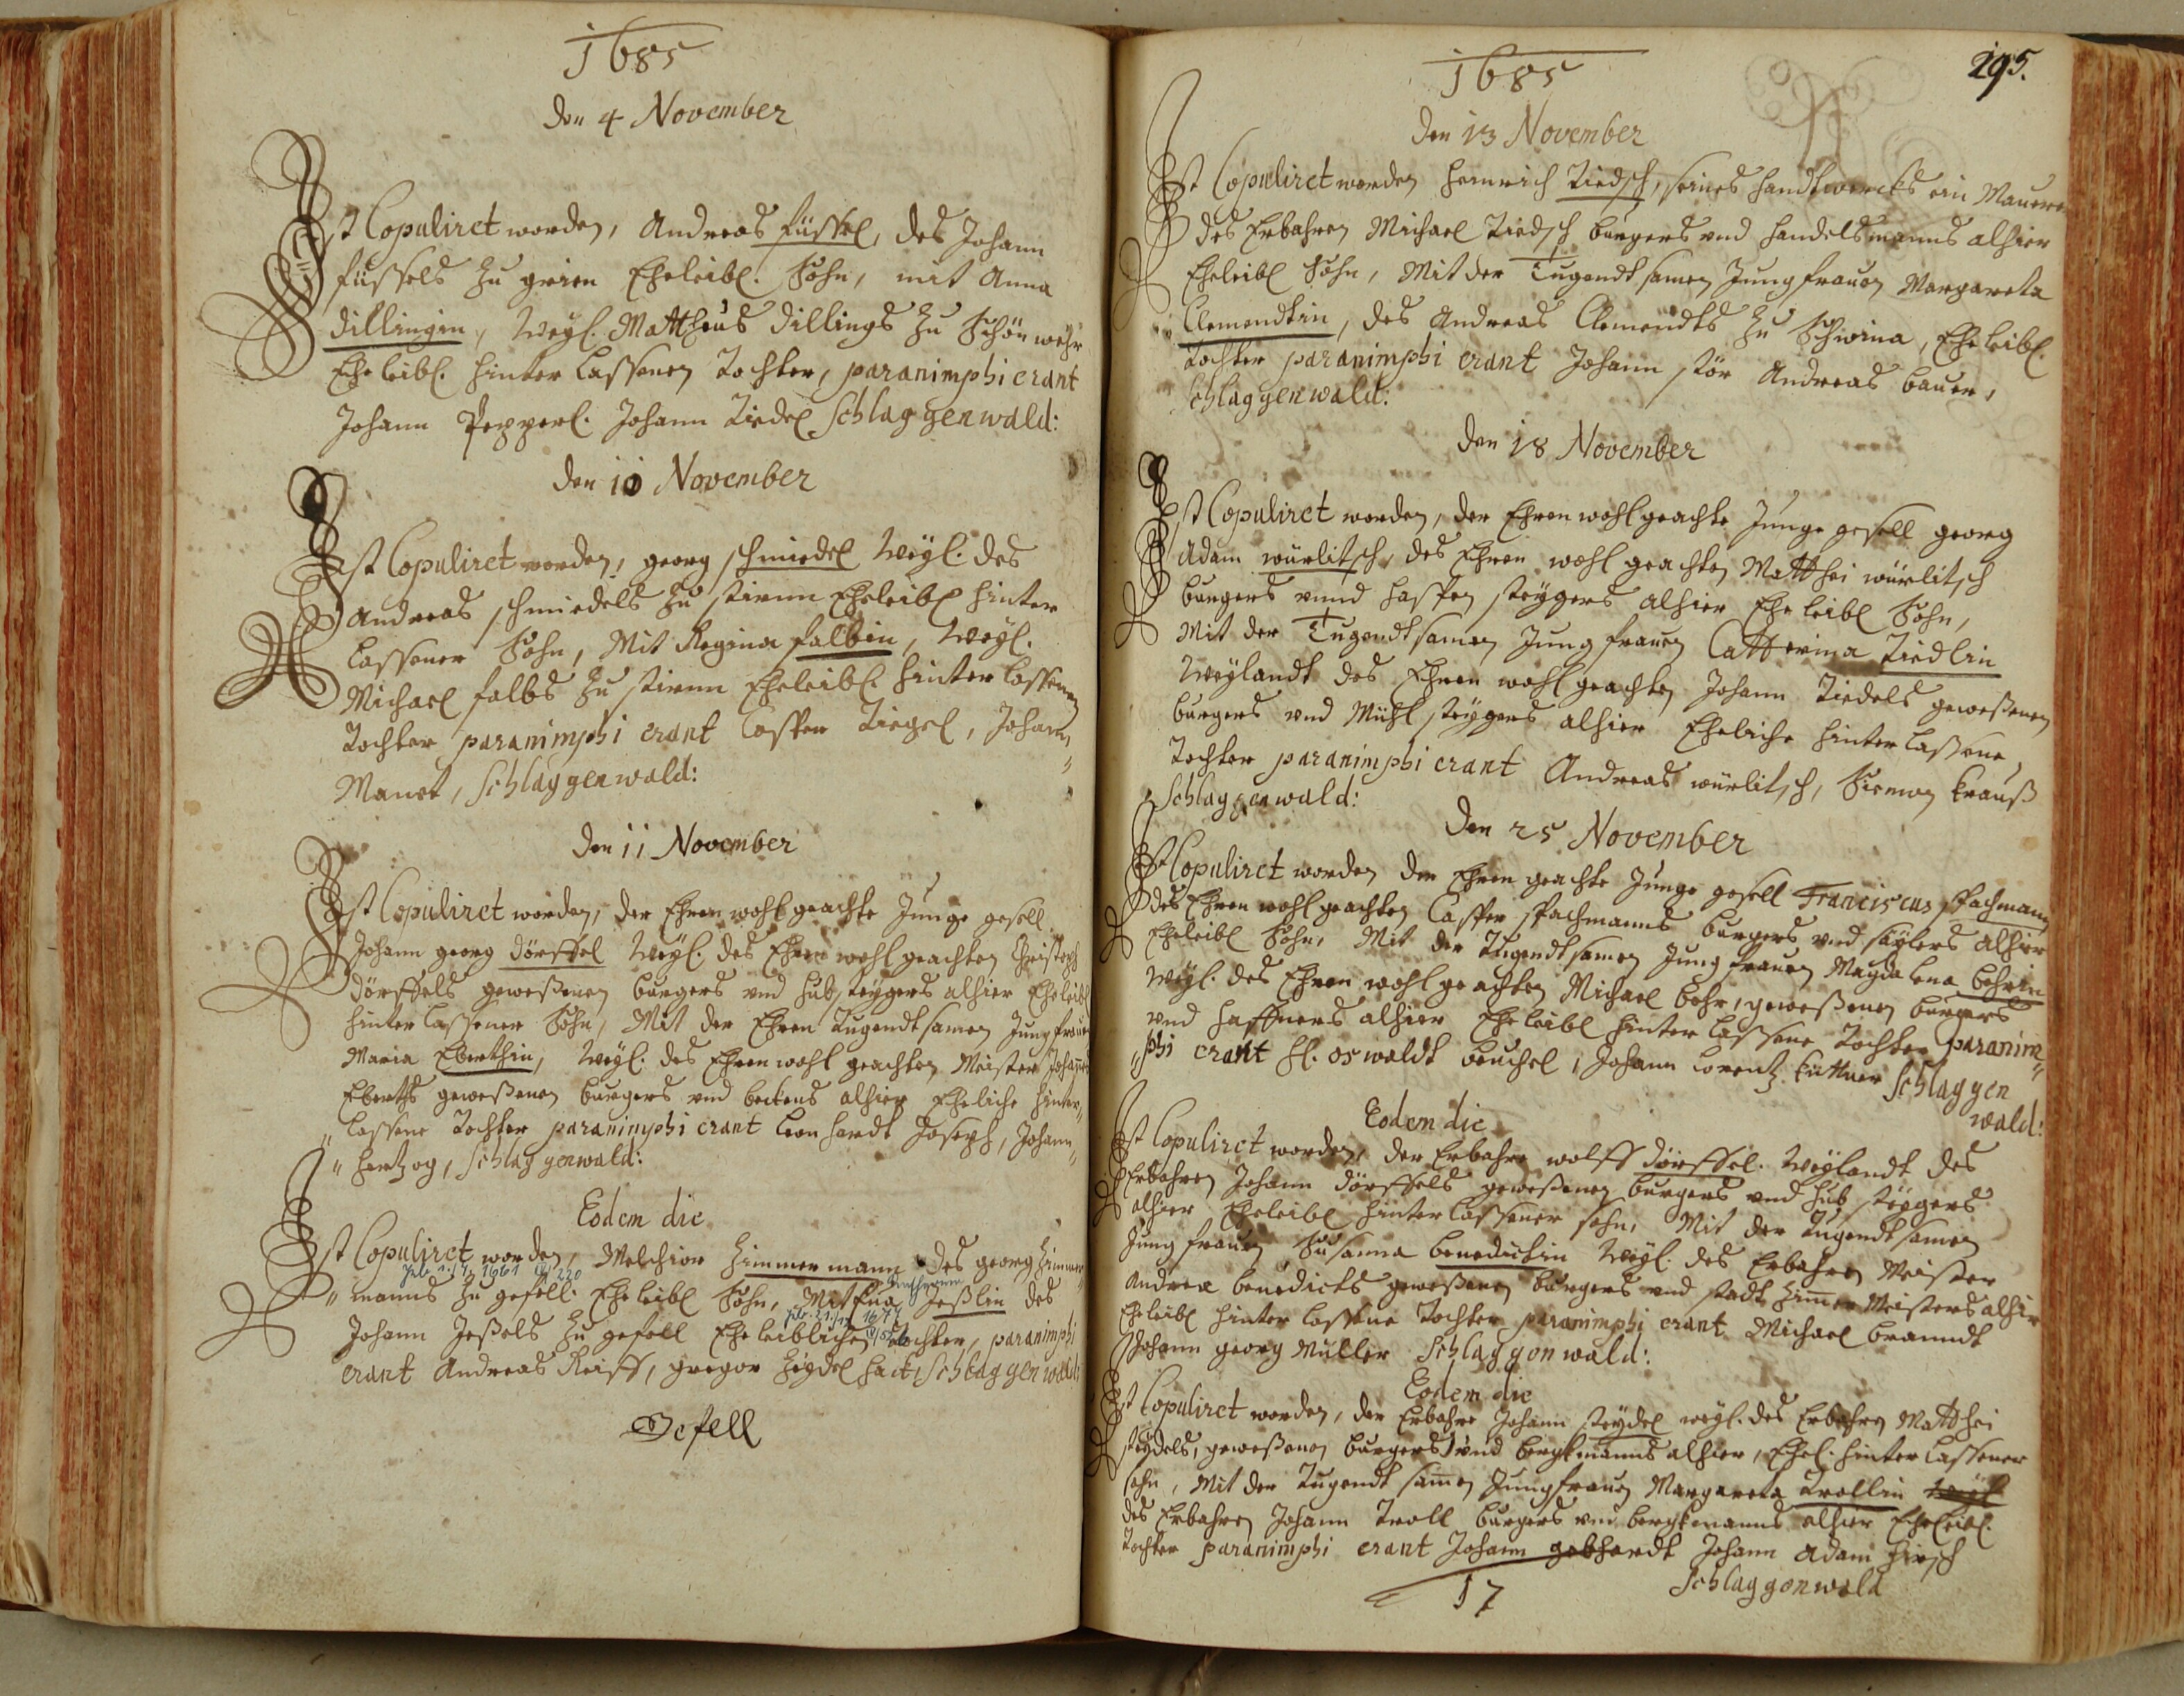 1685
den 4 November
Ist Copuliret worden, Andreas füssel, des Johann
füssels zu grien Eheleibl. Sohn, mit Anna
dillingin, Weyl. Mattheus dillings zu Schönwehr
Eheleibl. hinter lassenen Tochter, paranimphi erant
Johann Pepperl. Johann Tiedel Schlaggenwald:
den 10 November
Ist Copuliret worden, georg schmiedel Weyl. des
Andreas schmiedels zu stirnn Eheleibl hinter
lassener Sohn, Mit Regina falbin, Weyl.
Michael falbs zu stirnn Eheleibl. hinter lassenen
Tochter paranimphi erant Casper Tiegel, Johann
Schlaggenwald:
den 11 November
Ist Copuliret worden, der Ehren wohl geachte Junge gesell
Johann georg dörffel Weyl. des Ehren wohl geachten Christoph
dörffels geweßenen burgers und hubsteygers alhier Eheleibl
hinter laßener Sohn, Mit der Ehren Tugendtsamen Jungfrauen
Maria Eberthin, Weyl. des Ehren wohl geachten Meister Johannes
Eberths geweßenen burgers und beckens alhier Eheliche hinter„
„lassene Tochter paranimphi erant Leonhardt Joseph, Johann„
„hertzog, Schlaggenwald:
Eodem die
Ist Copuliret worden, Melchior Zimmermann des georg Zimmer„
„manns zu gefell. Eheleibl Sohn, Mit Eua Jeßlin des
Johann Jeßels zu gefell Eheleiblichen Tochter, paranimphi
erant Andreas Reiff, gregor Schlaggenwald
Gefell
1685
295.
den 13 November
Ist Copuliret worden heinrich Tiedsch, seines handtwercks ein Maurer
des Erbahren Michael Tiedsch burgers und handelsmanns alhier
Eheleibl Sohn, Mit der Tugendtsamen Jungfrauen Margareta
Clemendtin, des Andreas Clemendts zu Schwina, Eheleibl.
Tochter paranimphi erant Johann stör Andreas bauer,
Schlaggenwald:
den 18 November
Ist Copuliret worden, der Ehren wohlgeachte Junge gesell georg
Adam würlitsch, des Ehren wohl geachten Matthei würlitsch
burgers unnd steygers alhier Eheleibl Sohn,
Mit der Tugendtsamen Jungfrauen Catterina Tiedlin
Weylandt des Ehren wohlgeachten Johann Tiedels geweßenen
burgers und Mühl steygers alhier Eheliche hinterlaßene
Tochter paranimphi erant Andreas würlitsch, Siemon krauß
Schlaggenwald:
den 25 November
Ist Copuliret worden der Ehren geachte Junge gesell Franciscus Pachmann
des Ehren wohlgeachten Casper Pachmanns burgers und saylers alhier
Eheleibl Sohn, Mit der Tugendtsamen Jungfrauen Magdalena behrin
Weyl. des Ehren wohlgeachten Michael behr, geweßenen burgers
und haffners alhier Eheleibl hinter lassene Tochter paranim„
„phi erant H. oswaldt beuchel, Johann Lorentz küttner Schlaggen
wald:
Eodem die
Ist Copuliret worden, der Erbahre wolff dörffel. Weylandt des
Erbahren Johann dörffels geweßenen burgers und hub steygers
alhier Eheleibl hinterlassener sohn, Mit der Tugendtsamen
Jungfrauen Susanna benedictin Weyl. des Erbahren Meister
Andrea benedicts geweßenen burgers und stadt Zimmer Meisters alhier
Eheleibl hinter lassene Tochter paranimphi erant Michael brenndt
Johann georg Müller Schlaggenwald:
Eodem die
Ist Copuliret worden, der Erbahre Johann steydel weyl. des Erbahren Matthei
steydels, geweßenen burgers und bergkmanns alhier, Ehel. hinter lassener
sohn, Mit der Tugendt samen Jungfrauen Margareta Trollin weyl
des Erbahren Johann Troll burgers und bergkmanns alhier Eheleibl.
Tochter paranimphi erant Johann gebhardt Johann Adam hirsch
Schlaggenwald
17